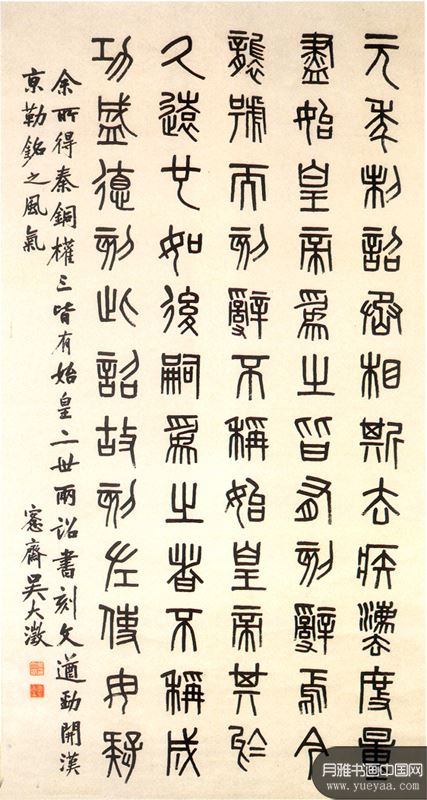 元年制詔丞相斯去疾灋度量
盡始皇帝爲之皆有刻辭焉今
襲號而刻辭不稱始皇帝其於
久遠也如後嗣爲之者不稱成
功盛德刻此詔故刻左使毋疑
余所得秦銅權三皆有始皇二世兩詔書刻文遒勁開漢
京勒銘之風氣
愙齋吳大澂
月雅书画中国网
www.yueyaa.com